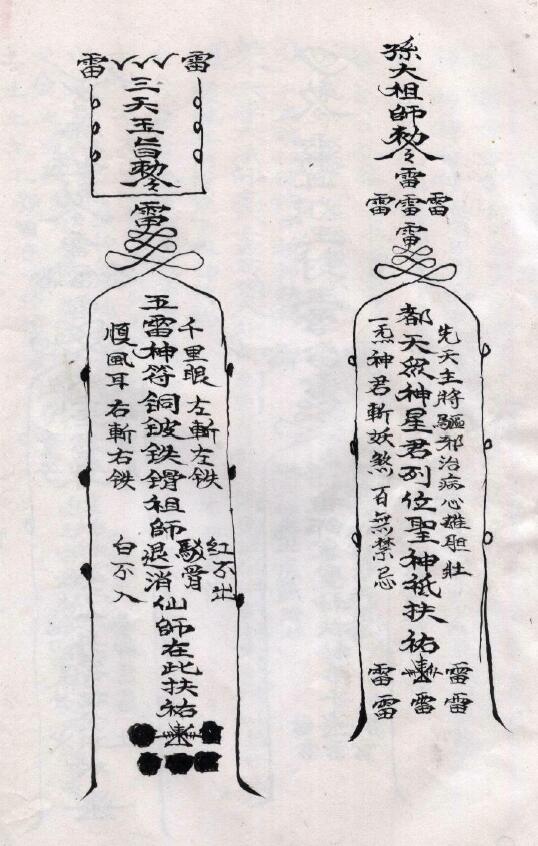 孫大祖師勅令
雷
雷雷雷
雷
先天主將驅邪治病心雄胆壮
都天眾神星君列位聖神祗扶祐
一炁神君斬妖煞百無禁忌
雷 雷
雷雷雷
雷 雷
三天玉旨勅令
雷
千里眼 左斬左鉄
五雷神符銅皮鉄骨祖師退消仙師在此扶祐
順風耳 右斬右鉄
紅不出
白不入